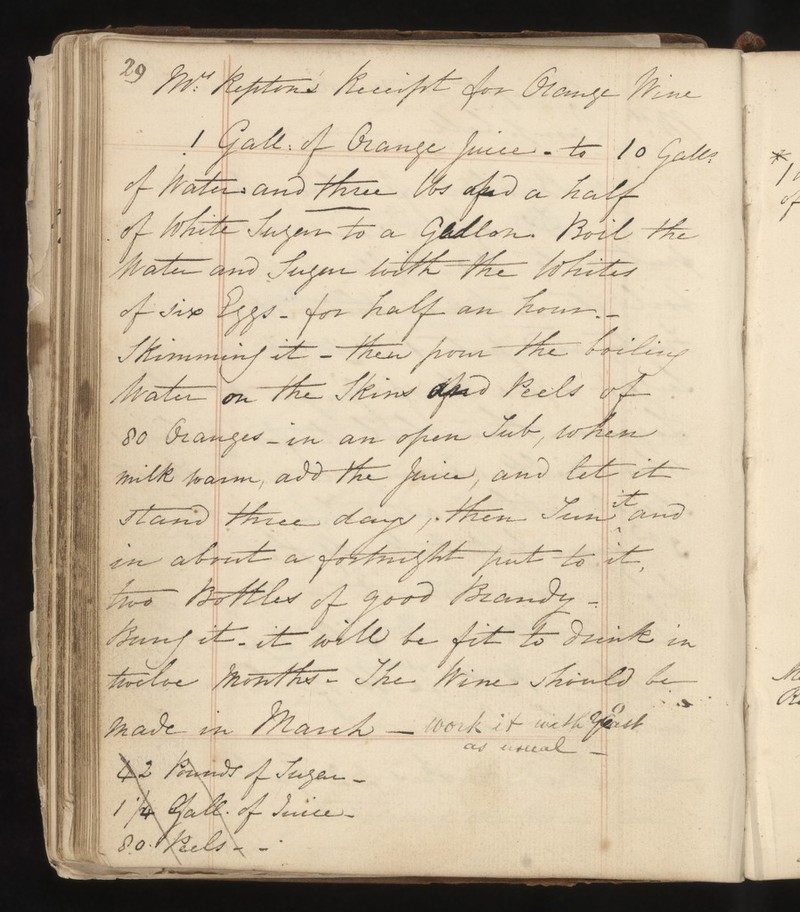 29
Mrs Repton's Receipt for Orange Wine
1 Gall: of Orange Juice - to 10 Galls
of Water and three lbs and a half
of White Sugar to a Gallon. Boil the
Water and Sugar with the Whites
of six Eggs - for half an hour -
Skimming it - then pour the boiling
Water on the Skins and Peels of
80 Oranges - in an open Tub, when
milk warm, add the Juice, and let it
stand three days, then Tun it and
in about a fortnight put to it,
two Bottles of good Brandy -
Bung it - it will be fit to drink in
twelve Months - The Wine should be
made in March - work it with Yeast
as usual -
42 Pounds of Sugar -
1 1/4 Gall. of Juice -
80 Peels - -